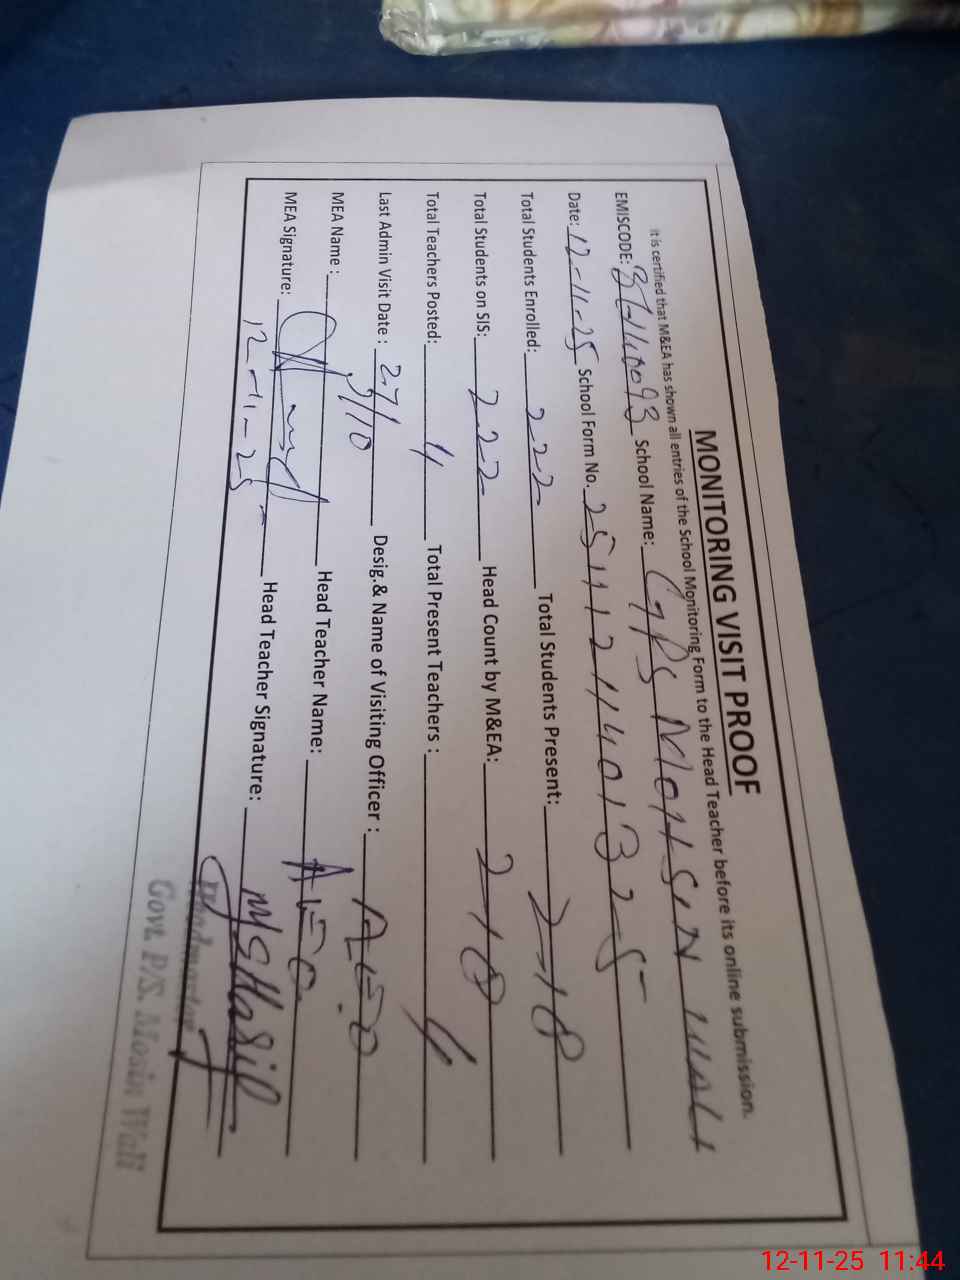 MONITORING VISIT PROOF
It is certified that M&EA has shown all entries of the School Monitoring Form to the Head Teacher before its online submission.
EMISCODE: School Name: GPS MOHSIN WALI
Date: 12-11-25 School Form No. 25111211401325
Total Students Enrolled: 222 Total Students Present: 218
Total Students on SIS: 222 Head Count by M&EA: 218
Total Teachers Posted: Total Present Teachers :
Last Admin Visit Date : 27/10 Desig.& Name of Visiting Officer : AEO
MEA Name : Head Teacher Name: AEO
MEA Signature: Head Teacher Signature:
12-11-25
Headmaster
Govt. P/S. Mosin Wali
12-11-25 11:44